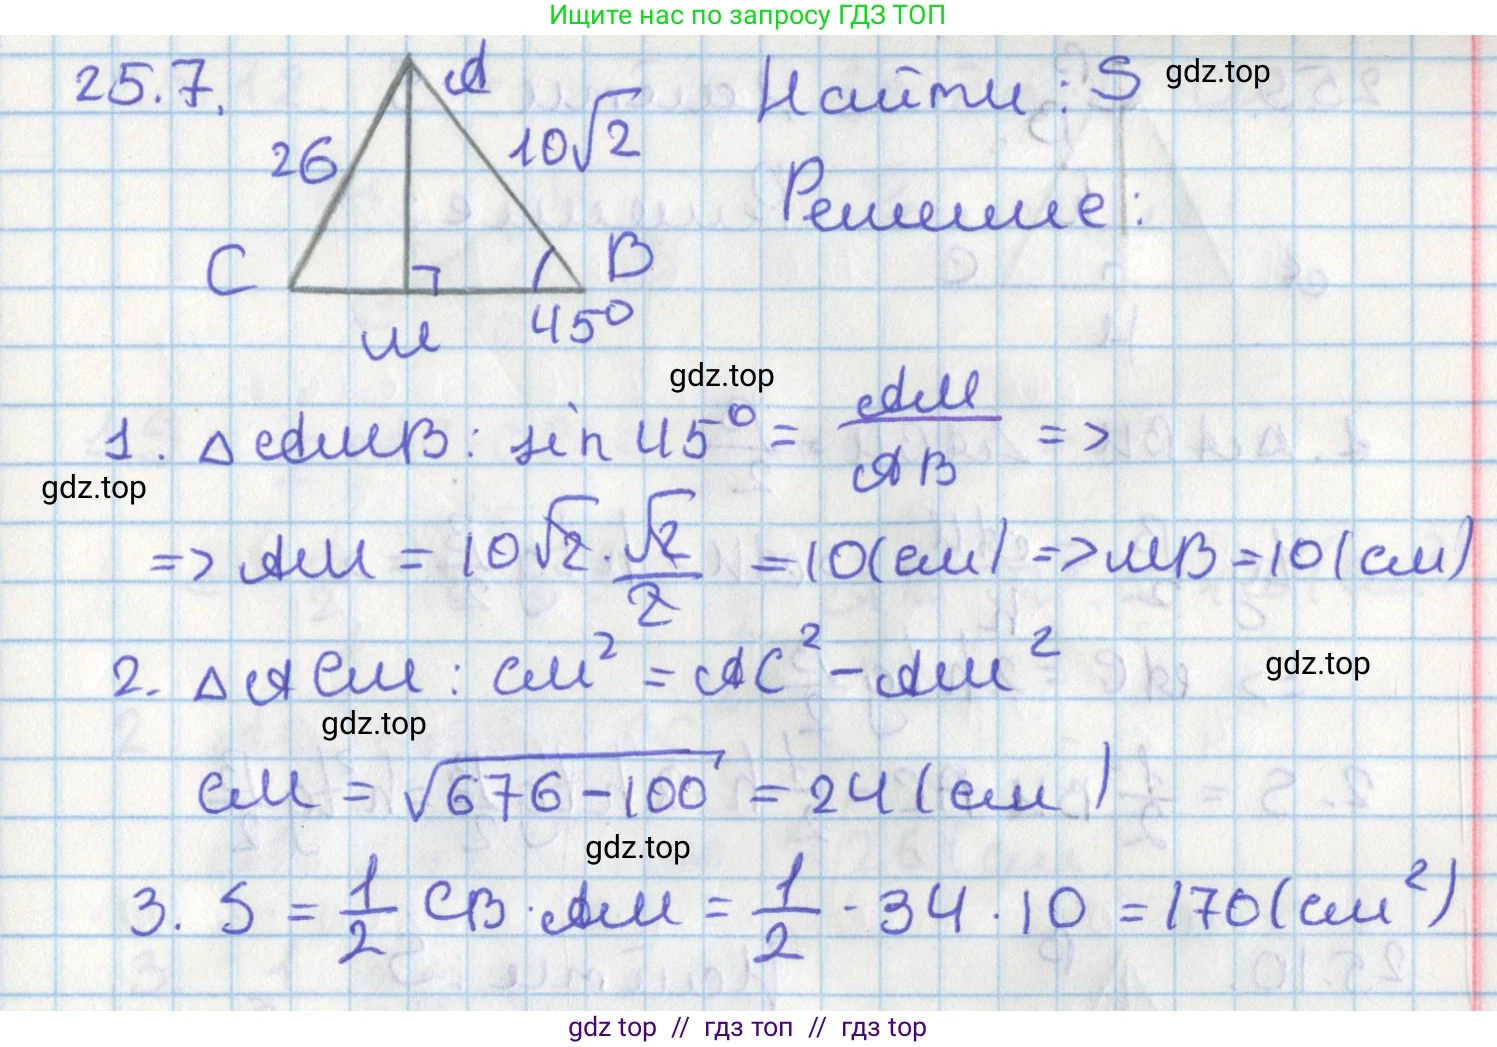 Ищите нас по запросу ГДЗ ТОП
25.7.
A
Найти: S
gdz.top
26
10√2
Решение:
C
B
M
45°
gdz.top
1. △AMB: sin 45° = AM/AB =>
gdz.top
=> AM = 10√2 · √2/2 = 10 (см) => MB = 10 (см)
2. △ACM: CM² = AC² - AM²
gdz.top
gdz.top
CM = √676-100 = 24 (см)
gdz.top
3. S = 1/2 CB · AM = 1/2 · 34 · 10 = 170 (см²)
gdz top // гдз топ // гдз top